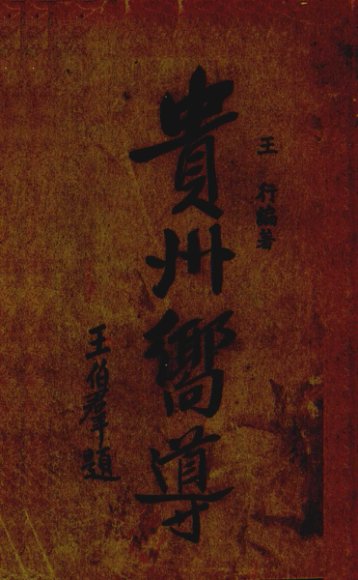 王 行編著
貴州嚮導
王伯羣題